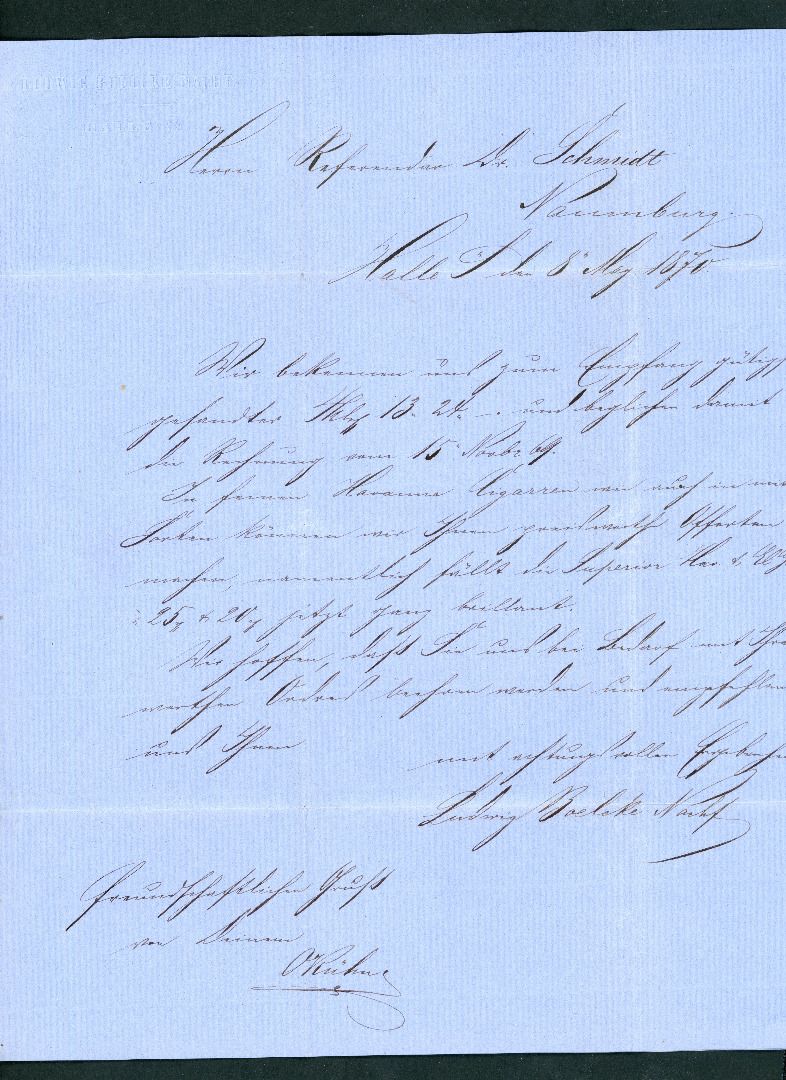 LUDWIG BOELCKE NACHF
HALLE
Herrn Referendar Dr. Schmidt
Naumburg.
Halle S den 8 May 1870
Wir bekennen uns zum Empfang gütigst
gesandter 13. 24. -. und beglichen damit
die Rechnung vom 15 Novbr 69.
In feinen Havanna Cigarren wie auch in
Sorten können wir Ihnen preiswerthe Offerten
machen, namentlich fällt die Superior Hav. &
à 25 & 20 jetzt ganz brillant.
Wir hoffen, daß Sie uns bei Bedarf mit Ihren
werthen Ordres beehren werden und empfehlen
uns Ihnen
mit achtungsvoller Ergebenheit
Ludwig Boelcke Nachf
Freundschaftlichen Gruß
von Deinem
O Kühn